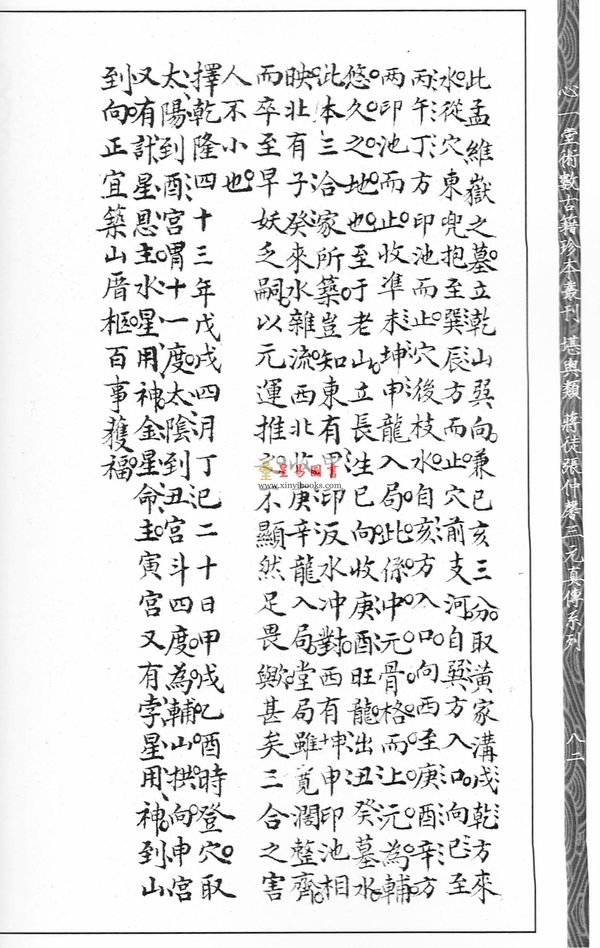 心一堂術數古籍珍本叢刊 堪輿類 蔣徒張仲馨三元真傳系列
八二
此孟維嶽之墓立乾山巽向兼巳亥三分取黃家溝戌乾方來
水從穴東兜抱至巽辰方而止穴前支河自巽方入口向巳至
丙午丁方印池而止穴後枝水自亥方入口向西至庚酉辛方
兩印池而止收準未坤申龍入局此係中元骨格而上元為輔
悠久之地也至于老山立長生巳向收庚酉旺龍出丑癸墓水
此本三合家所築豈知東有甲卯反水冲對西有坤申印池相
映北有子癸來水雜流西北收庚辛龍入局堂局雖寬濶整齊
而卒至早妖乏嗣以元運推不顯然足畏歟甚矣三合之害
人不小也
擇乾隆四十三年戊戌四月丁巳二十日甲戌乙酉時登穴取
太陽到酉宮胃十一度太陰到丑宮斗四度為輔山拱向申宮
又有計星恩主水星用神金星命主寅宮又有孛星用神到山
到向正宜築山厝柩百事獲福
星易圖書
www.xinyibooks.com